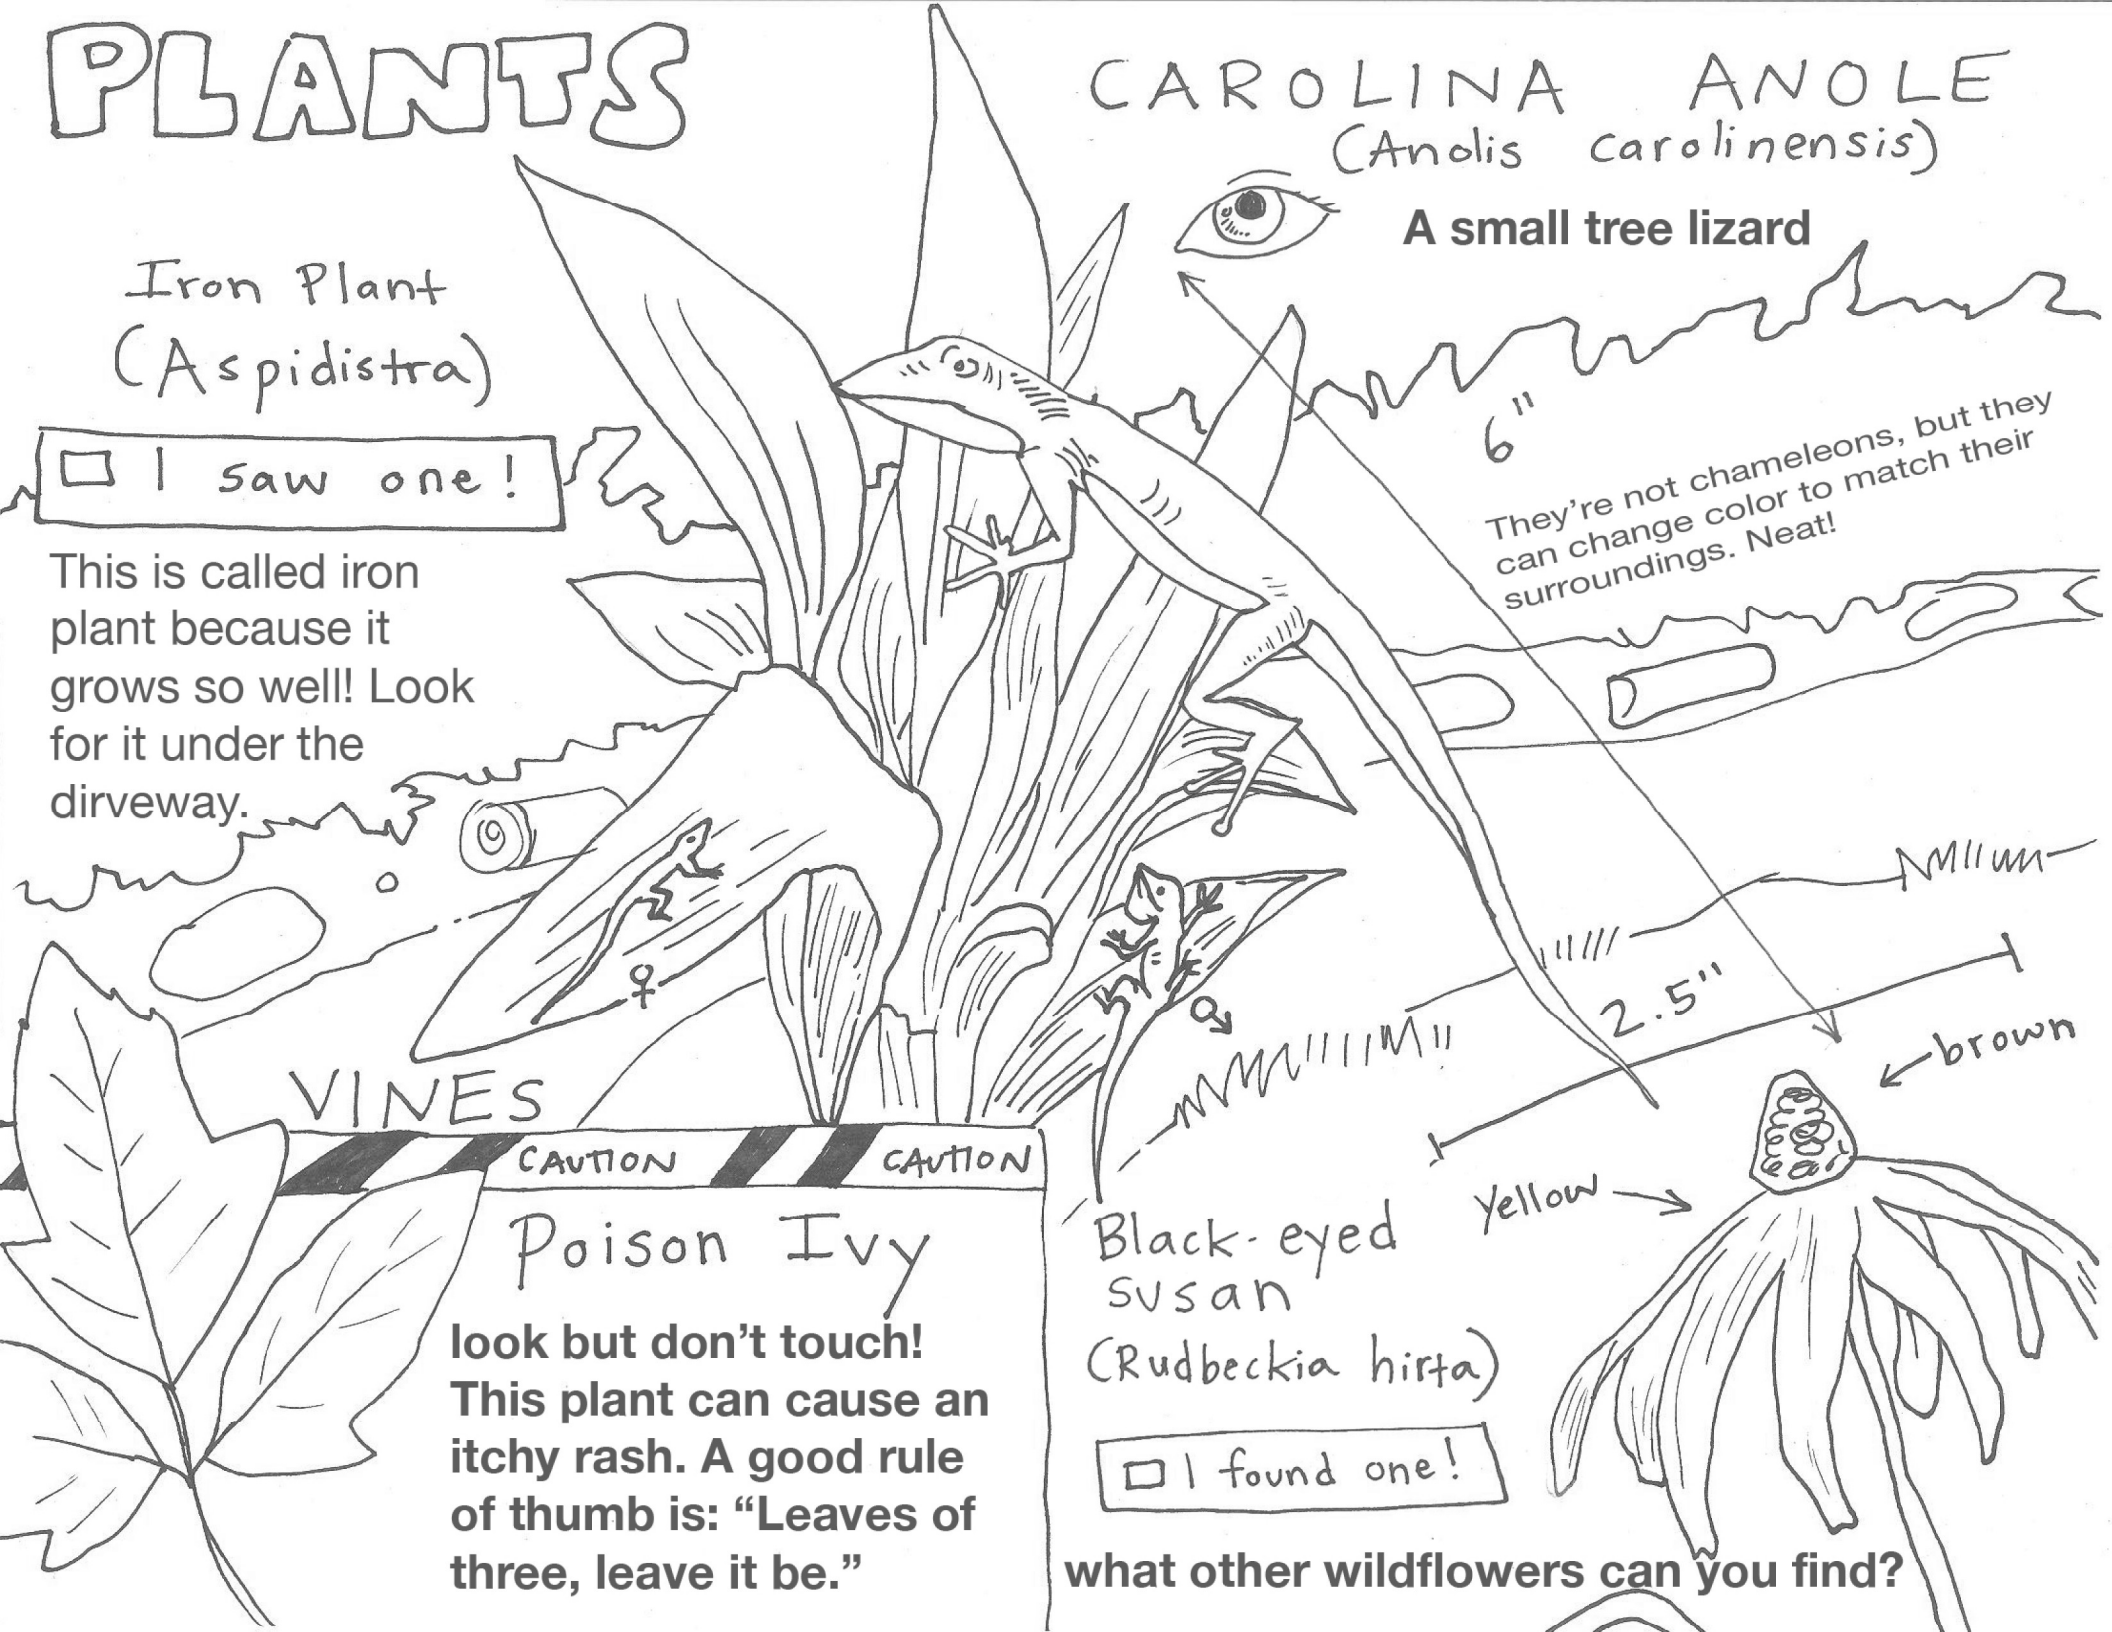 PLANTS
CAROLINA ANOLE
(Anolis carolinensis)
A small tree lizard
Iron Plant
(Aspidistra)
I saw one!
This is called iron
plant because it
grows so well! Look
for it under the
dirveway.
6"
They're not chameleons, but they
can change color to match their
surroundings. Neat!
♀
♂
2.5"
brown
yellow
VINES
CAUTION CAUTION
Poison Ivy
look but don't touch!
This plant can cause an
itchy rash. A good rule
of thumb is: “Leaves of
three, leave it be.”
Black-eyed
susan
(Rudbeckia hirta)
I found one!
what other wildflowers can you find?